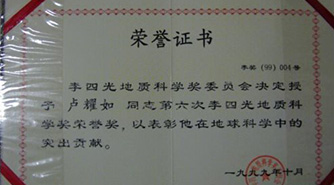 荣誉证书
李奖(99)004号
李四光地质科学奖委员会决定授
予 卢耀如 同志第六次李四光地质科
学奖荣誉奖，以表彰他在地球科学中的
突出贡献。
一九九九年十月